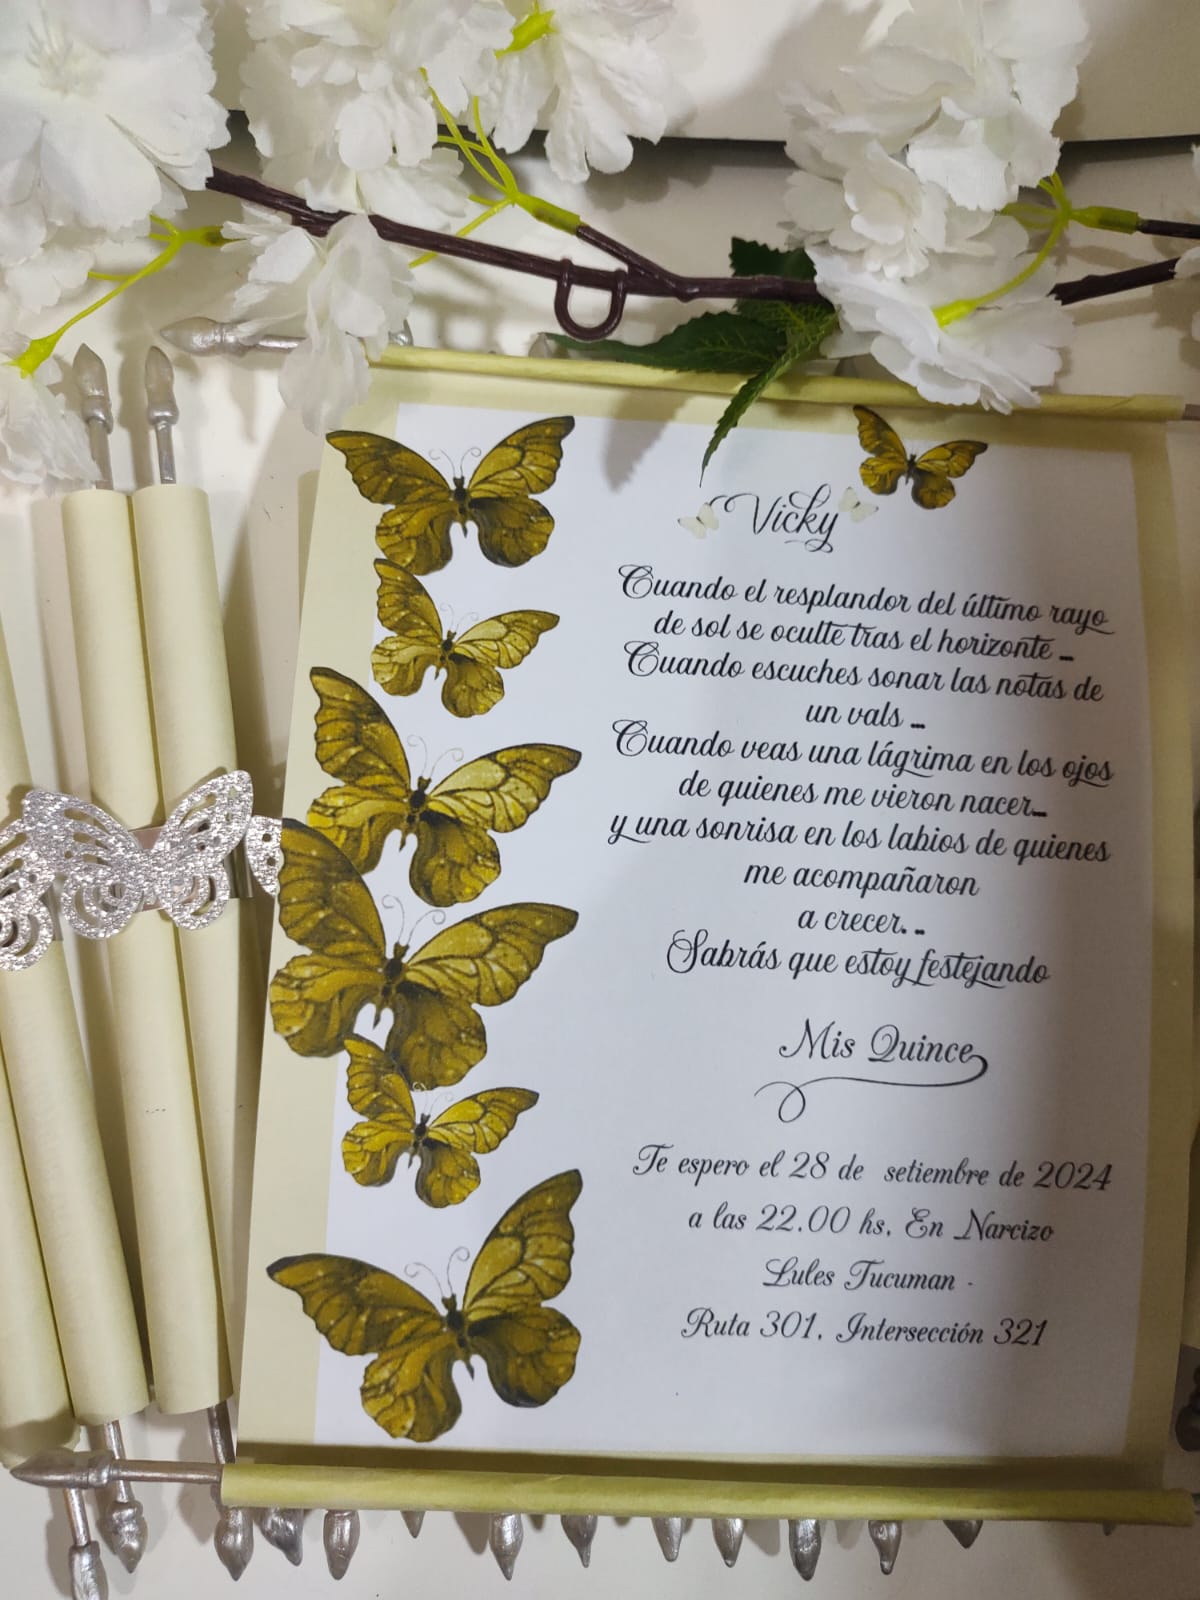 Vicky
Cuando el resplandor del último rayo
de sol se oculte tras el horizonte ...
Cuando escuches sonar las notas de
un vals ...
Cuando veas una lágrima en los ojos
de quienes me vieron nacer...
y una sonrisa en los labios de quienes
me acompañaron
a crecer. ..
Sabrás que estoy festejando
Mis Quince
Te espero el 28 de setiembre de 2024
a las 22.00 hs. En Narcizo
Lules Tucuman -
Ruta 301. Intersección 321